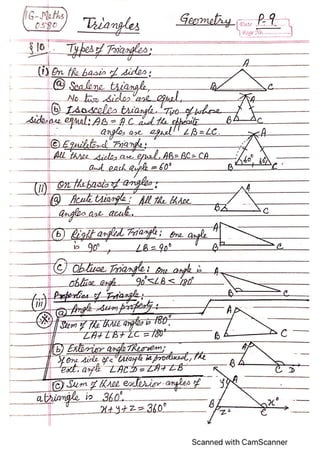 G-Maths
0580
Triangles
Geometry
Date
P-9
Page No.
§10. Types of Triangles:
(i) On the basis of sides:
(a) Scalene triangle.
No two sides are equal.
A
B
C
(b) Isosceles triangle. Two of whose
side are equal; AB = AC and the opposite
angles are equal ∠B = ∠C.
A
B
C
(c) Equilateral Triangle:
All three sides are equal. AB = BC = CA
and each angle = 60°
A
60°
60°
B
C
(ii) On the basis of angles:
(a) Acute triangle: All the three
angles are acute.
A
B
C
(b) Right angled Triangle: One angle
is 90°, ∠B = 90°
A
B
C
(c) Obtuse Triangle: One angle is
obtuse angle 90° < ∠B < 180°
A
B
C
(iii) Properties of Triangle:
(a) Angle sum property:
Sum of the three angles is 180°.
∠A + ∠B + ∠C = 180°
A
B
C
(b) Exterior angle Theorem:
If one side of a triangle is produced, the
ext. angle ∠ACD = ∠A + ∠B
A
B
C
D
(c) Sum of three exterior angles of
a triangle is 360°.
x + y + z = 360°
y°
A
B
z°
C
x°
Scanned with CamScanner